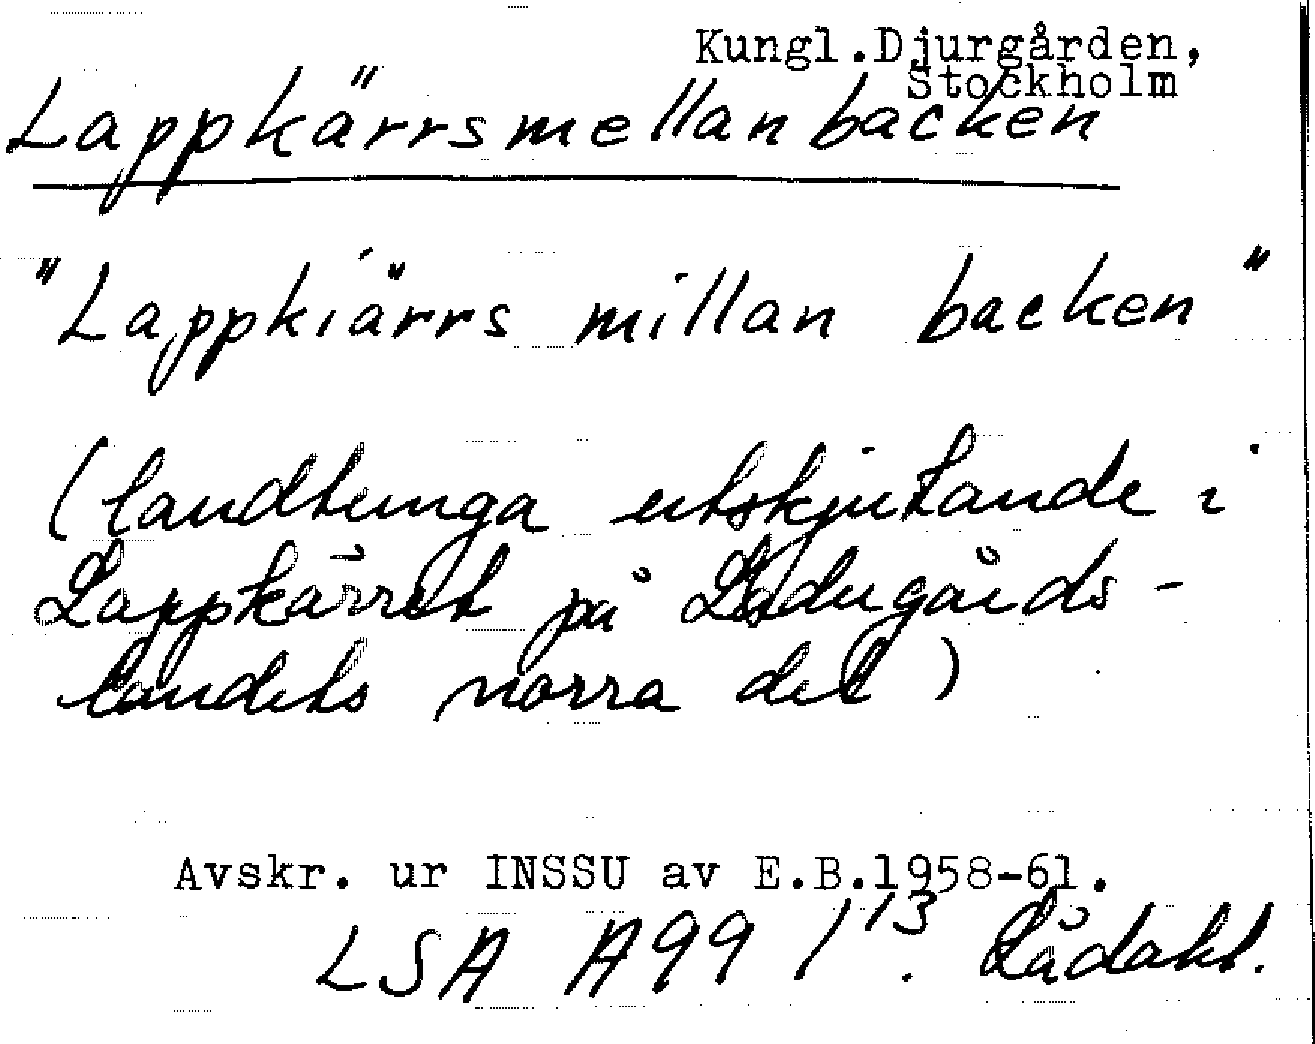 Kungl.Djurgården,
Stockholm
Lappkärrsmellanbacken
"Lappkiärrs millan backen"
(landtunga utskjutande i
Lappkärret på Ladugårds-
landets norra del)
Avskr. ur INSSU av E.B.1958-61.
LSA A99 1 13. Lådakt.